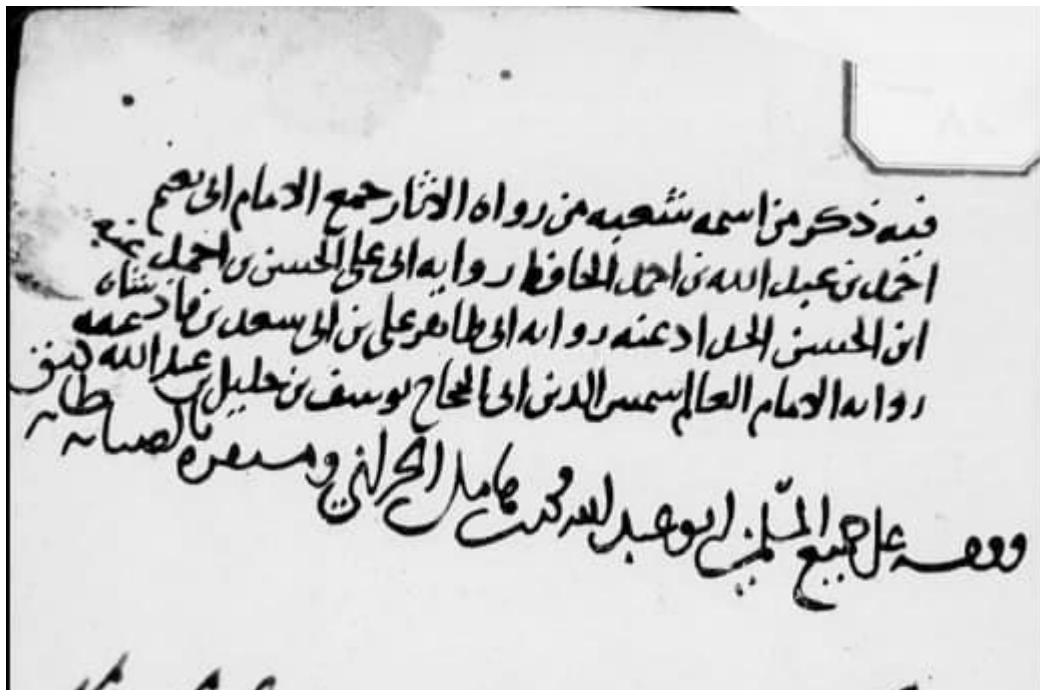 فيه ذكر من اسمه شعبه من رواه الاثار جمع الامام ابى نعيم
احمد بن عبد الله بن احمد الحافظ روايه ابى على الحسن بن احمد
ابن الحسن الحداد عنه روايه ابى طاهر على بن ابى سعد بن فاذشاه عنه
روايه الامام العالم شمس الدين ابى الحجاج يوسف بن خليل بن عبد الله
وقفه على جميع المسلمين ابو عبد الله محمد بن كامل الحراني ومستقره بالضيائيه